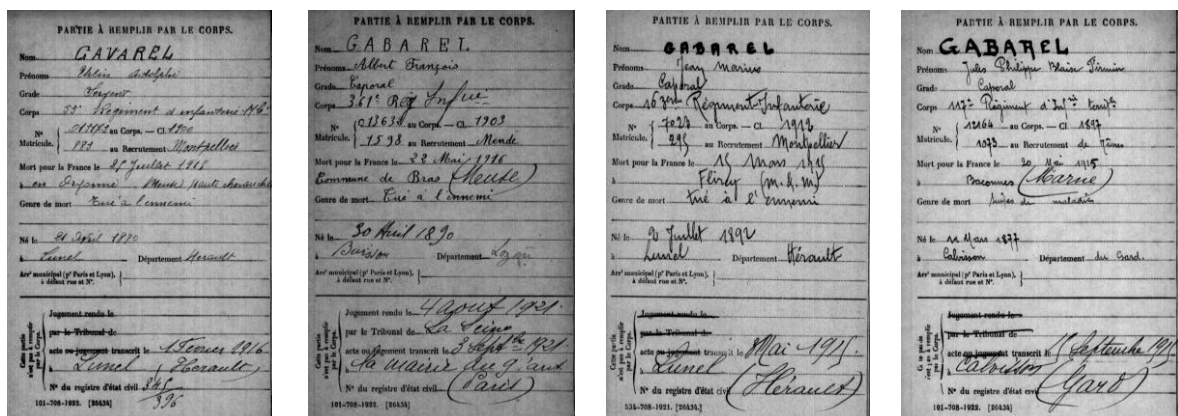 PARTIE À REMPLIR PAR LE CORPS.
Nom GAVAREL
Prénoms Adolphe
Grade Sergent
Corps 55e Régiment d'infanterie
No Matricule. au Corps. — Cl. 1900
893 au Recrutement Montpellier
Mort pour la France le 25 Juillet 1915
à
Genre de mort Tué à l'ennemi
Né le 21 Avril 1880
à Lunel Département Hérault
Arrt municipal (pr Paris et Lyon), à défaut rue et No.
Cette partie n'est pas à remplir par le Corps.
Jugement rendu le
par le Tribunal de
acte ou jugement transcrit le 1 Février 1916
à Lunel (Hérault)
No du registre d'état civil 395/396
101-708-1922. [26434]
PARTIE À REMPLIR PAR LE CORPS.
Nom GABARET
Prénoms Albert François
Grade Caporal
Corps 361e Rég Infrie
No Matricule. 013634 au Corps. — Cl. 1903
1598 au Recrutement Mende
Mort pour la France le 22 Mai 1916
Commune de Bras (Meuse)
Genre de mort Tué à l'ennemi
Né le 30 Avril 1890
à Buisson Département Lozère
Arrt municipal (pr Paris et Lyon), à défaut rue et No.
Cette partie n'est pas à remplir par le Corps.
Jugement rendu le 4 août 1921
par le Tribunal de La Seine
acte ou jugement transcrit le 3 Septbre 1921
à la mairie du 9e arrt
No du registre d'état civil (Paris)
101-708-1922. [26434]
PARTIE À REMPLIR PAR LE CORPS.
Nom GABAREL
Prénoms Jean Marius
Grade Caporal
Corps 163e Régiment Infanterie
No Matricule. 7023 au Corps. — Cl. 1912
295 au Recrutement Montpellier
Mort pour la France le 15 Mars 1915
à Flirey (M. & M)
Genre de mort tué à l'ennemi
Né le 2 Juillet 1892
à Lunel Département Hérault
Arrt municipal (pr Paris et Lyon), à défaut rue et No.
Cette partie n'est pas à remplir par le Corps.
Jugement rendu le
par le Tribunal de
acte ou jugement transcrit le Mai 1915.
à Lunel
No du registre d'état civil (Hérault)
534-708-1921. [26434.]
PARTIE À REMPLIR PAR LE CORPS.
Nom GABAREL
Prénoms Jules Philippe Blaise Firmin
Grade Caporal
Corps 117e Régiment d'Infrie
No Matricule. 12164 au Corps. — Cl. 1897
1073 au Recrutement de Nîmes
Mort pour la France le 20 Mai 1915
à Baconnes (Marne)
Genre de mort suites de maladie
Né le 11 Mars 1877
à Calvisson Département du Gard.
Arrt municipal (pr Paris et Lyon), à défaut rue et No.
Cette partie n'est pas à remplir par le Corps.
Jugement rendu le
par le Tribunal de
acte ou jugement transcrit le Septembre 1915
à Calvisson
No du registre d'état civil (Gard)
101-708-1922. [26434]